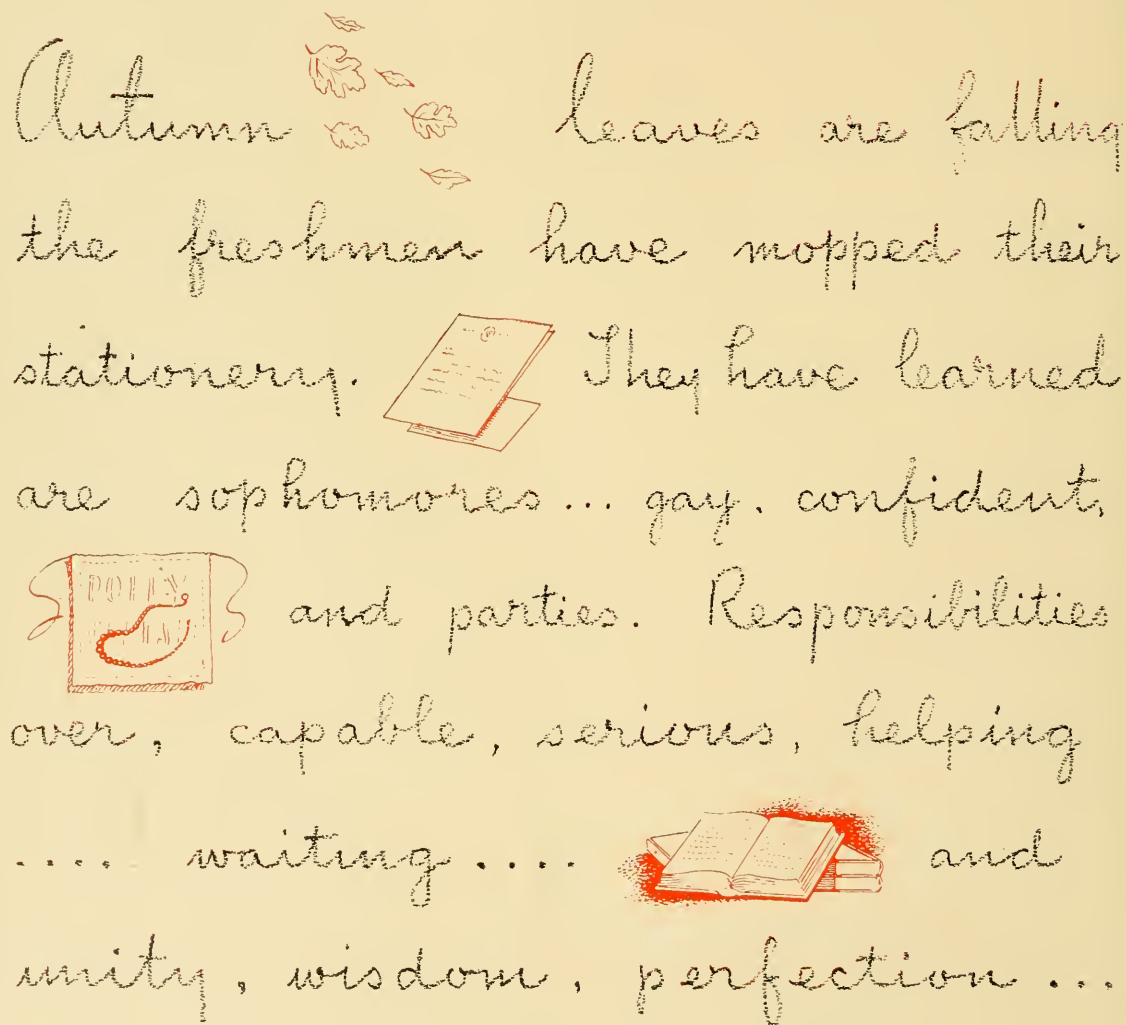 Autumn leaves are falling
the freshmen have mopped their
stationery. They have learned
are sophomores... gay, confident,
and parties. Responsibilities
over, capable, serious, helping
.... waiting .... and
unity, wisdom, perfection ...